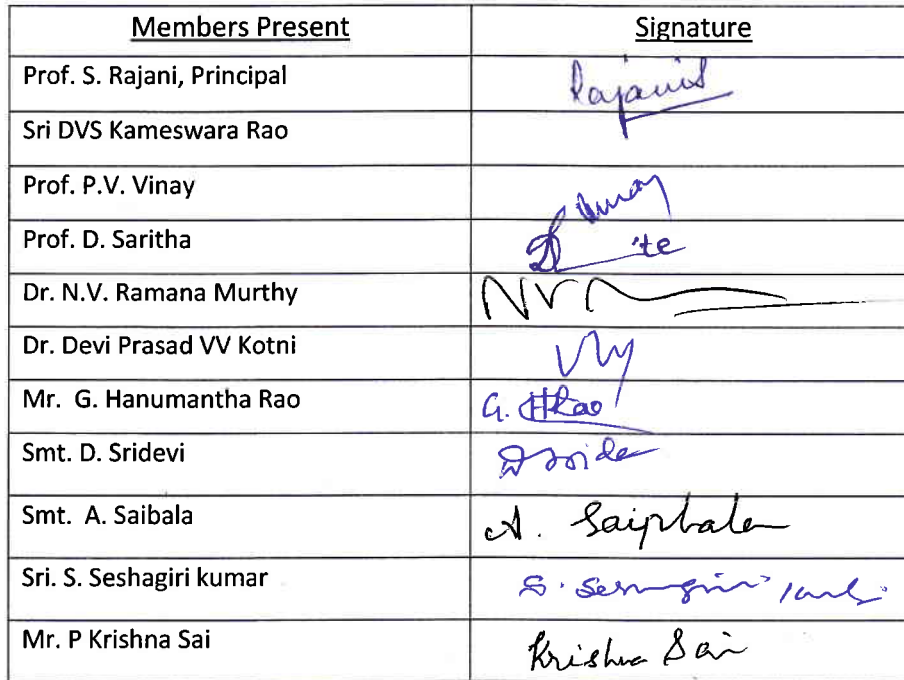 Members Present Signature
Prof. S. Rajani, Principal Rajani S
Sri DVS Kameswara Rao
Prof. P.V. Vinay Vinay
Prof. D. Saritha
Dr. N.V. Ramana Murthy
Dr. Devi Prasad VV Kotni
Mr. G. Hanumantha Rao G. H Rao
Smt. D. Sridevi
Smt. A. Saibala A.
Sri. S. Seshagiri kumar S.
Mr. P Krishna Sai Krishna Sai